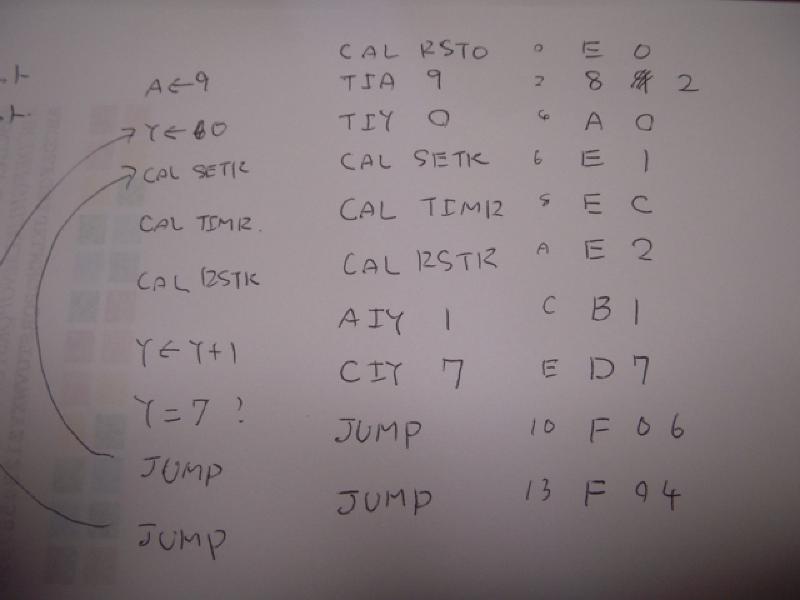 CAL RST0 0 E 0
A←9 TIA 9 2 8 2
Y←0 TIY 0 4 A 0
CAL SETR TIY CAL SETR 6 E 1
CAL TIMR. CAL TIMR 8 E C
CAL RSTR CAL RSTR A E 2
AIY 1 C B 1
Y←Y+1
CIY 7 E D 7
Y=7 ?
JUMP 10 F 0 6
JUMP
JUMP 13 F 0 4
JUMP